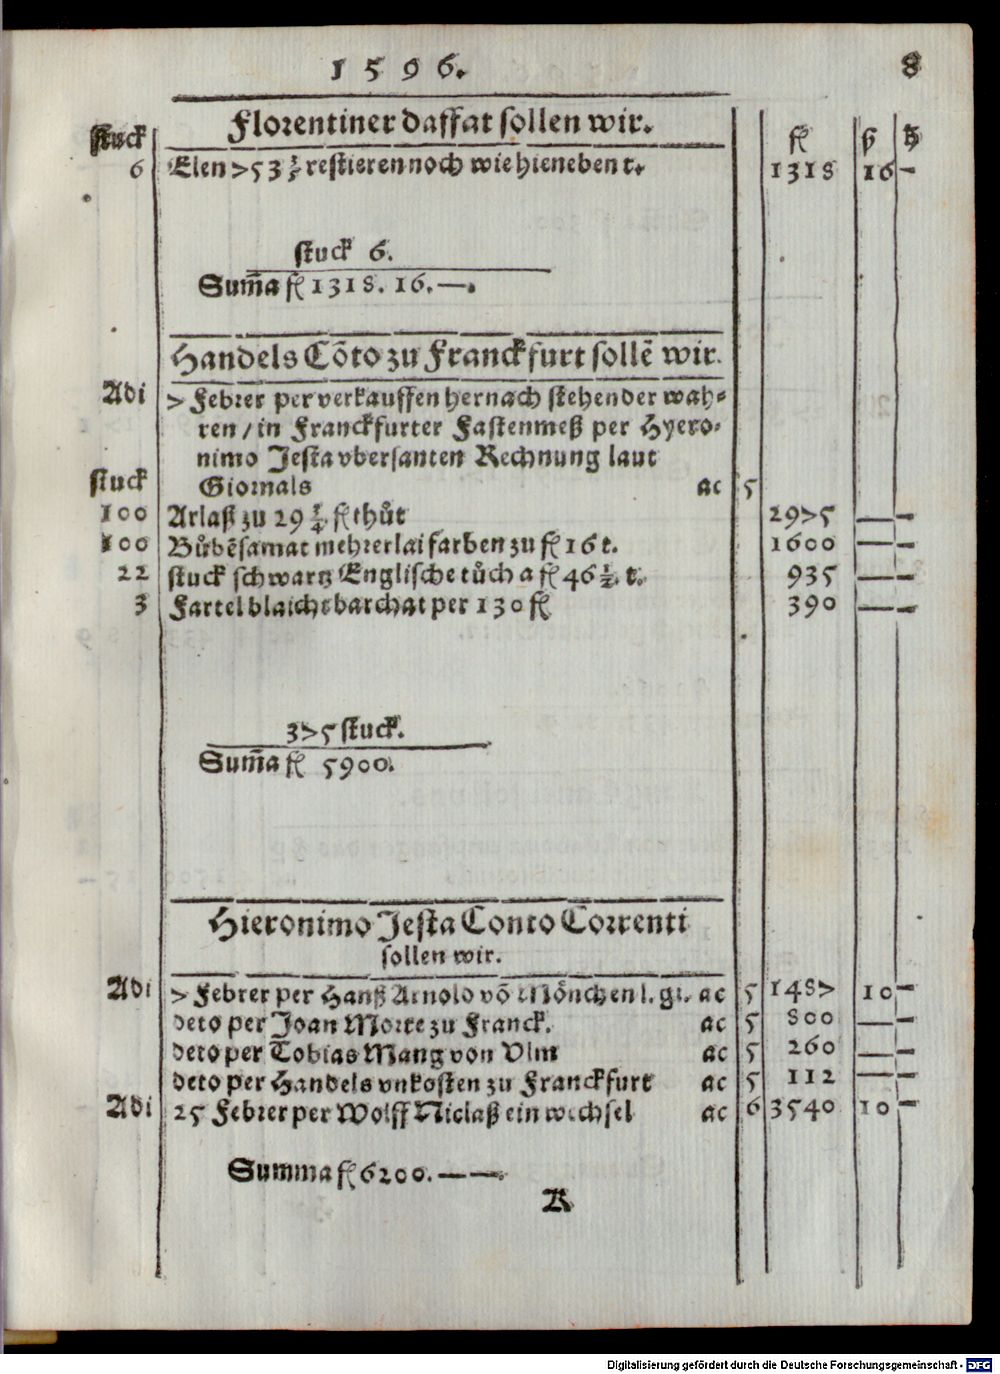 1596.
8
Florentiner daffat sollen wir.
stuck fl ß hl
6 Elen 753 1/2 restieren noch wie hieneben t. 1318 16 —
stuck 6.
Sum̄a fl 1318. 16. —.
Handels Cōto zu Franckfurt sollē wir.
Adi 7 Febrer per verkauffen hernach stehender wah-
ren / in Franckfurter Fastenmeß per Hyero-
nimo Jesta vbersanten Rechnung laut
stuck Giornals ac 5
100 Arlaß zu 29 3/4 fl thůt 2975 — —
100 Bůbēsamat mehrerlai farben zu fl 16 t. 1600 — —
22 stuck schwartz Englische tůch a fl 46 1/2 t. 935 — —
3 Fartel blaicht barchat per 130 fl 390 — —
375 stuck.
Sum̄a fl 5900.
Hieronimo Jesta Conto Correnti
sollen wir.
Adi 7 Febrer per Hanß Arnold võ Mönchen l. gt. ac 5 1487 10 —
deto per Joan Morte zu Franck. ac 5 800 — —
deto per Tobias Mang von Vlm ac 5 260 — —
deto per Handels vnkosten zu Franckfurt ac 5 112 — —
Adi 25 Febrer per Wolff Niclaß ein wechsel ac 6 3540 10 —
Summa fl 6200. — —.
R
Digitalisierung gefördert durch die Deutsche Forschungsgemeinschaft - DFG